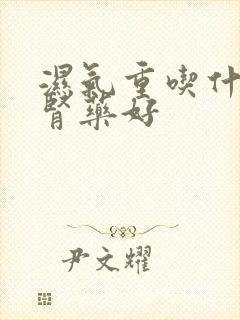 濕氣重喫什
肾藥好
尹文耀